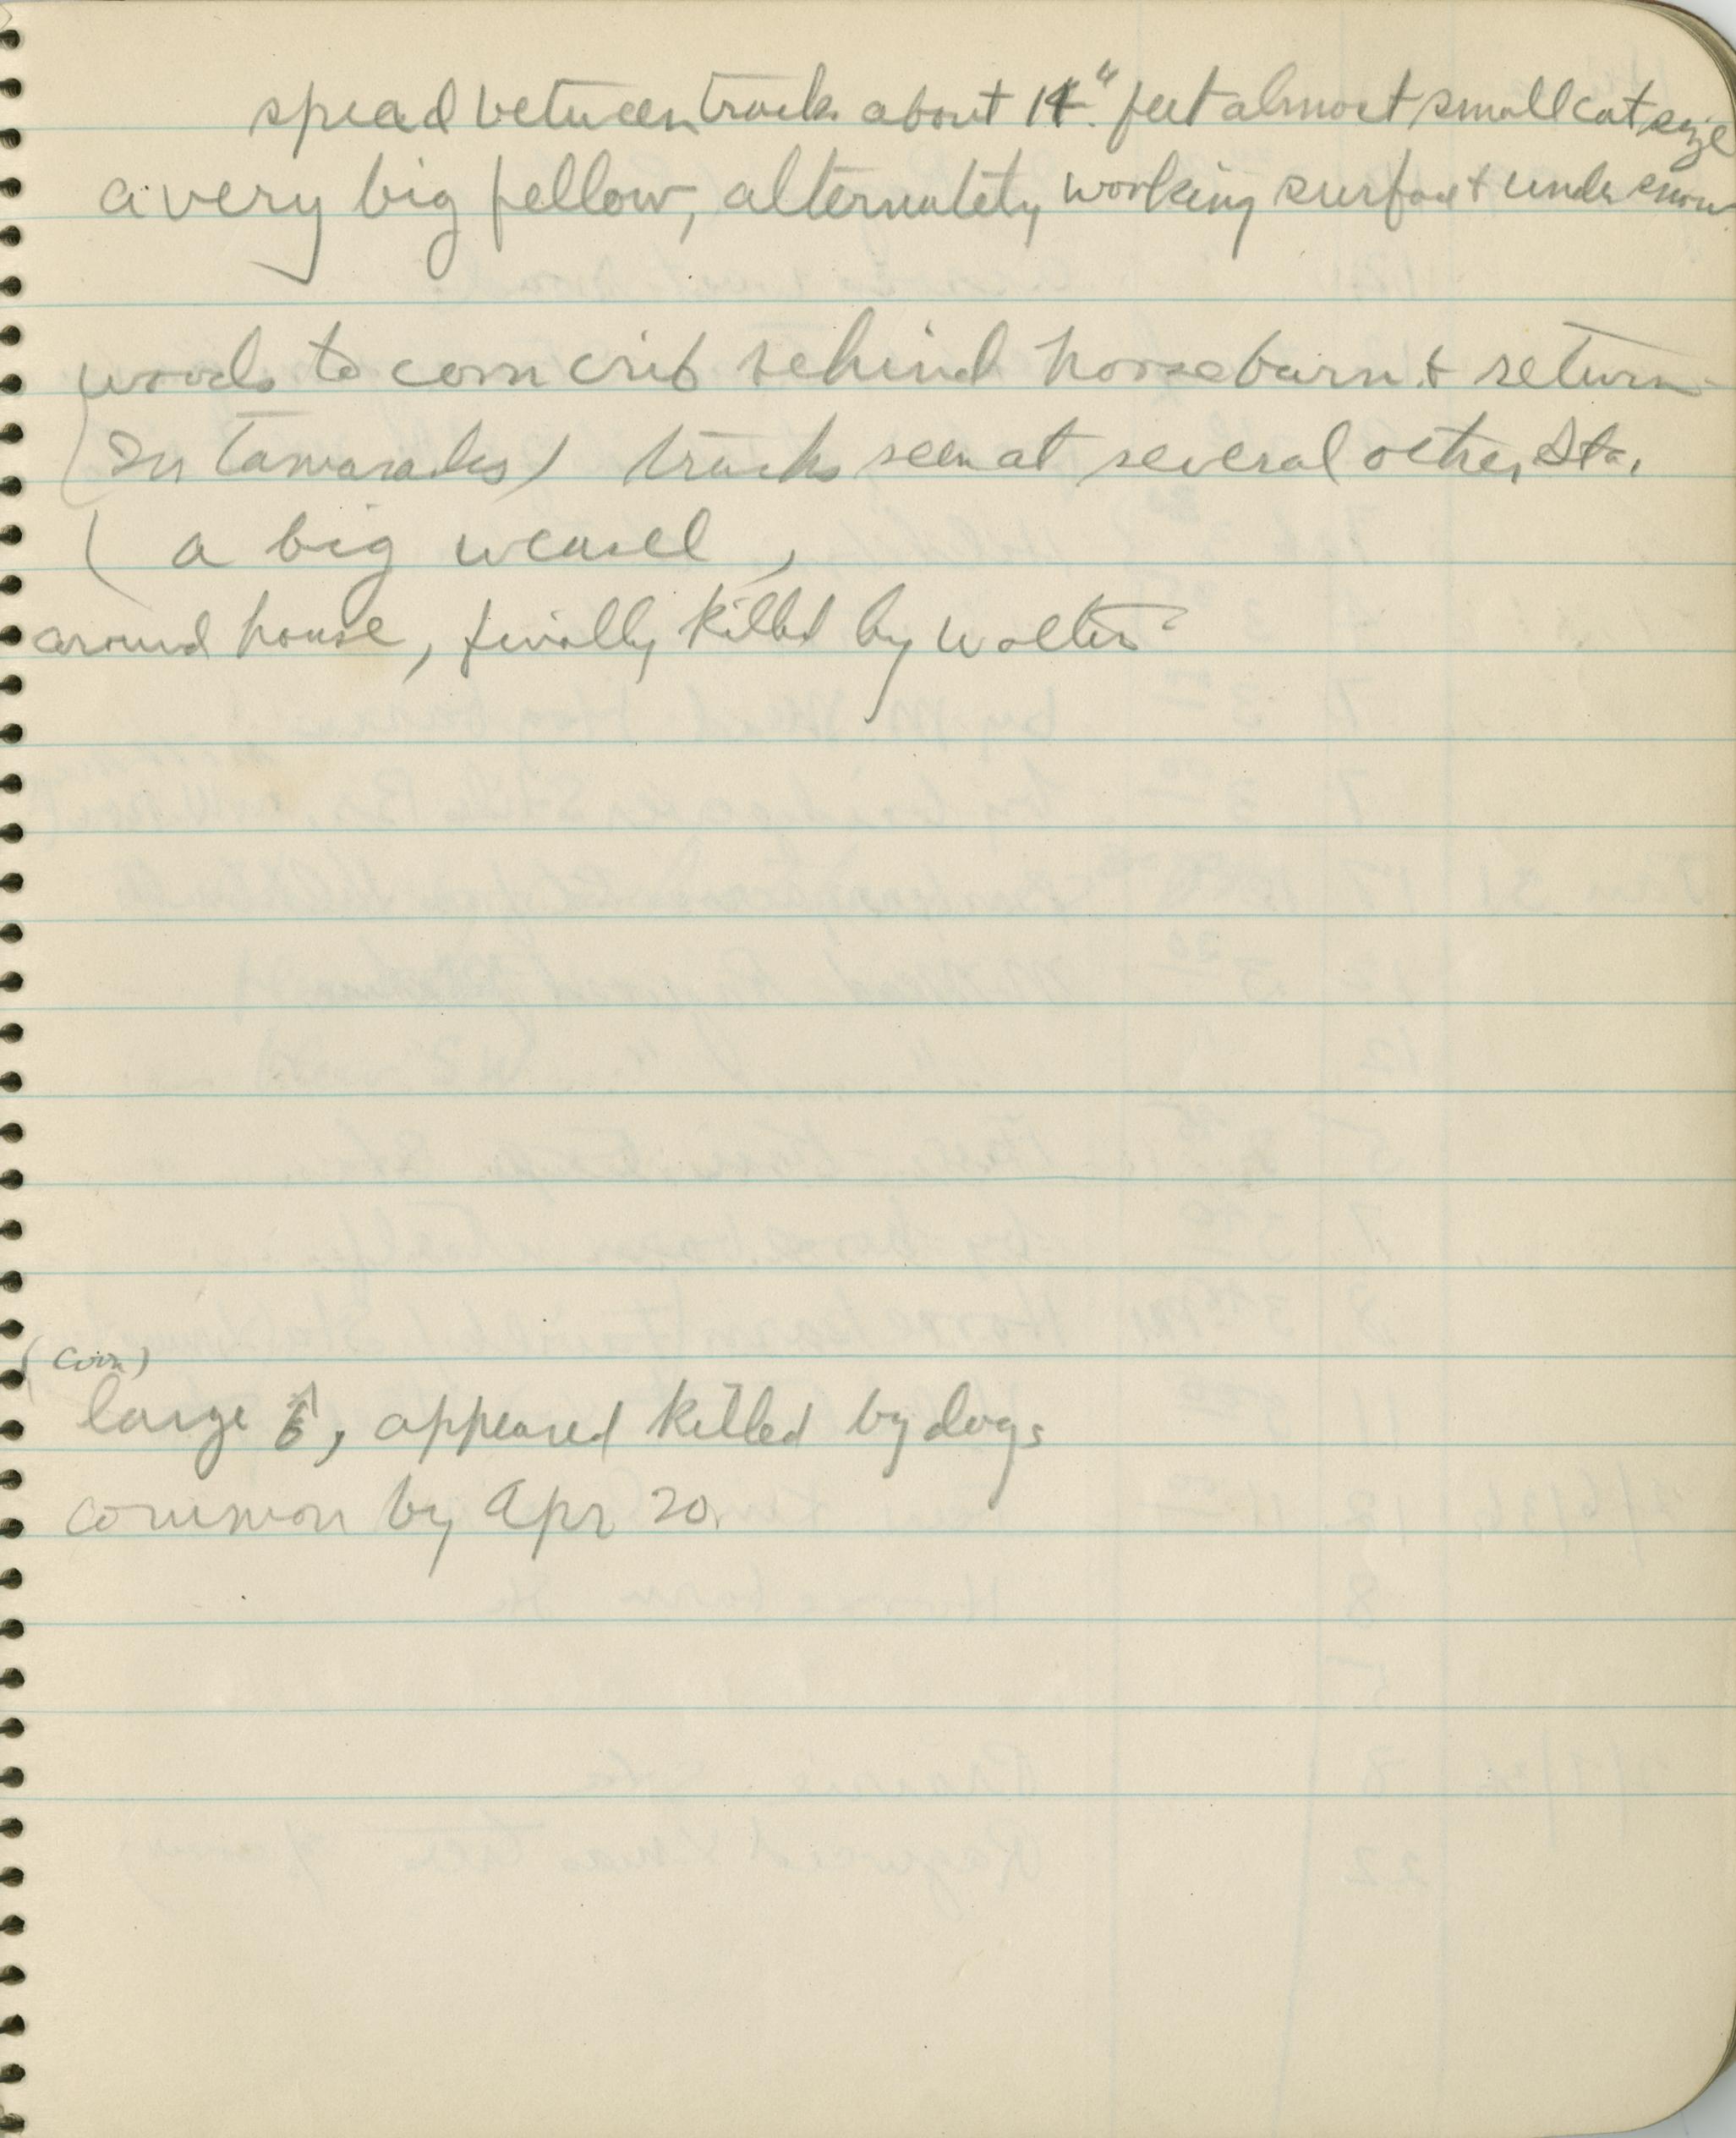 spread between tracks about 14". feet almost small cat size
a very big fellow, alternately working surface + under snow.
woods to corn crib behind horsebarn & return
(In Tamaracks) tracks seen at several other Sta.
(a big weasel)
around house, finally killed by Walter
(coon)
large ♂, appeared killed by dogs
common by Apr 20.